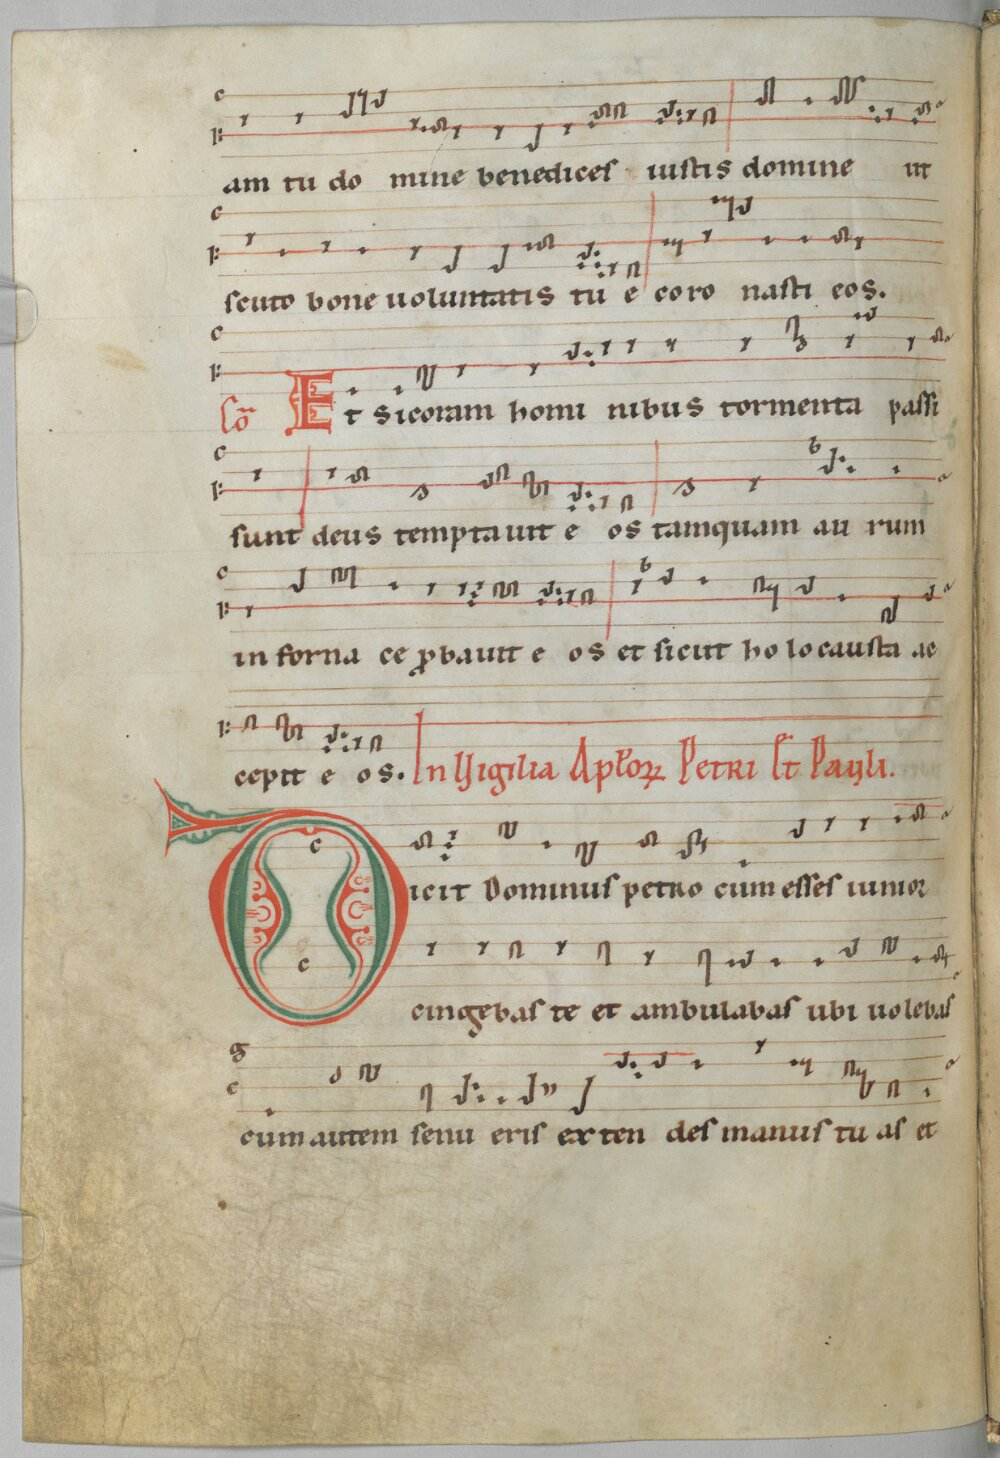 am tu do mine benedices iustis domine ut
scuto bone uoluntatis tu e coro nasti eos.
Co Et si coram homi nibus tormenta passi
sunt deus temptauit e os tamquam au rum
in forna ce ꝓbauit e os et sicut ho locausta ac
cepit e os. In Uigilia Apłoꝝ Petri Et Pauli.
Dicit Dominus petro cum esses iunior
cingebas te et ambulabas ubi uolebas
cum autem senu eris ex ten des manus tu as et